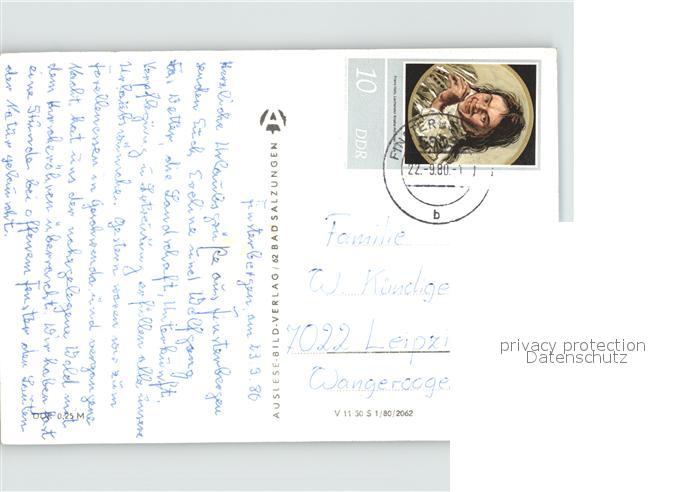 Finsterbergen, am 23.9.80
Herzliche Urlaubsgrüße aus Finsterbergen
senden Euch Eveline und Wolfgang.
Das Wetter, die Landschaft, Unterkunft,
Verpflegung u. Betreuung erfüllen alle unsere
Urlaubswünsche. Gestern waren wir zum
Forellenessen in Georgenthal und vergangene
Nacht hat uns der nahegelegene Wald mit
dem Hirschröhren überrascht. Wir haben fast
eine Stunde bei offenem Fenster den Lauten
der Natur gelauscht.
DDR 0,25 M
AUSLESE-BILD-VERLAG / 62 BAD SALZUNGEN
A
10
DDR
FINSTERBE
22.-9.80.-1
b
Familie
W. Kündige
7022 Leipzi
Wangerooge
V 11 30 S 1/80/2062
privacy protection
Datenschutz